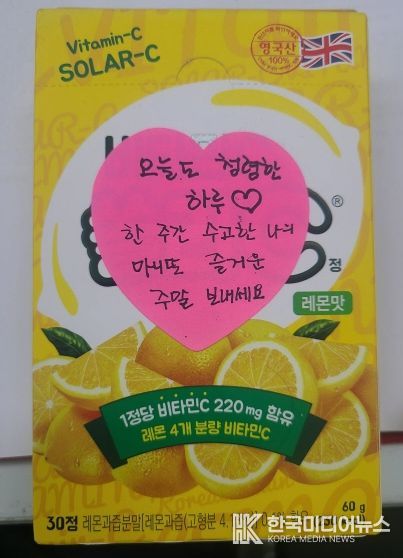 Vitamin-C
SOLAR-C
영국산
100%
오늘도 청렴한
하루♡
한 주간 수고한 나의
마니또 즐거운
주말 보내세요
®
정
레몬맛
1정당 비타민C 220 mg 함유
레몬 4개 분량 비타민C
60 g
30정 레몬과즙분말[레몬과즙(고형분 4.
한국미디어뉴스
KOREA MEDIA NEWS